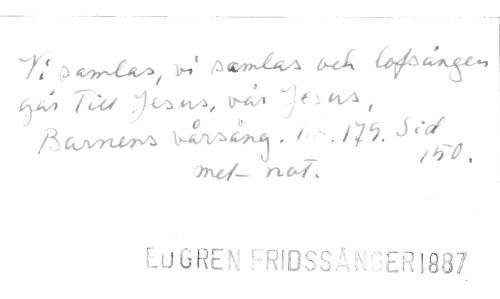 Vi samlas, vi samlas och lofsången
går Till Jesus, vår Jesus,
Barnens vårsång. No. 179. Sid
150.
met not.
EDGREN FRIDSSÅNGER 1887